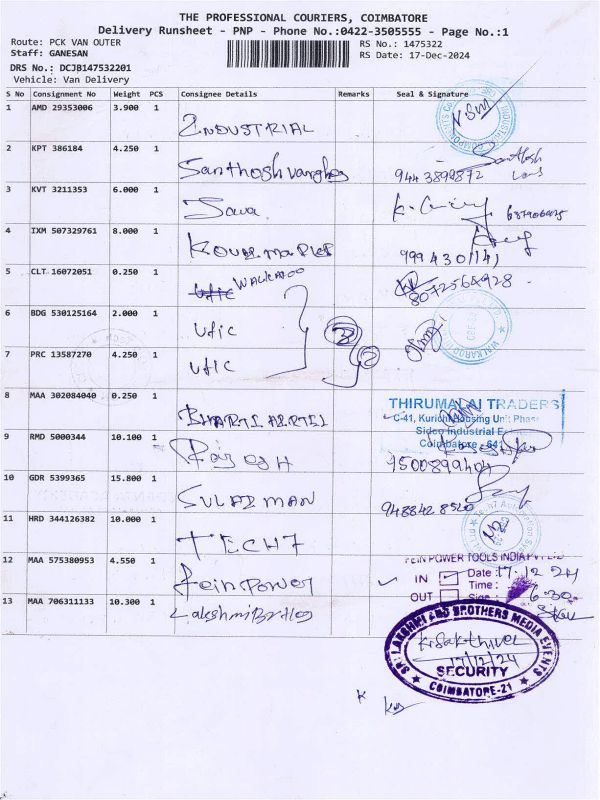 THE PROFESSIONAL COURIERS, COIMBATORE
Delivery Runsheet - PNP - Phone No.:0422-3505555 - Page No.:1
Route: PCK VAN OUTER
RS No.: 1475322
Staff: GANESAN
RS Date: 17-Dec-2024
DRS No.: DCJB147532201
Vehicle: Van Delivery
S No Consignment No Weight PCS Consignee Details Remarks Seal & Signature
1 AMD 29353006 3.900 1 INDUSTRIAL
2 KPT 386184 4.250 1 Santhosh varghes 9443899872 Santhosh
3 KVT 3211353 6.000 1
4 IXM 507329761 8.000 1
5 CLT 16072051 0.250 1 WALKAROO 8072564928
6 BDG 530125164 2.000 1 Ufic
7 PRC 13587270 4.250 1 Ufic
8 MAA 302084040 0.250 1 BHARTI AIRTEL
THIRUMALAI TRADERS
C-41, Kurichi Housing Unit Phase
Sidco Industrial
Coimbatore - 641
9 RMD 5000344 10.100 1 Rajesh 7500899404
10 GDR 5399365 15.800 1 SULAIMAN 9488428520
11 HRD 344126382 10.000 1 TECH7
12 MAA 575380953 4.550 1 Fein Power
FEIN POWER TOOLS INDIA PVT LTD
IN Date: 17.12.24
Time:
OUT Sign: 6.30
13 MAA 706311133 10.300 1 Lakshmi Brothers
SRI LAKSHMI AND BROTHERS MEDIA EVENTS
K. Sakthivel
17/12/24
SECURITY
COIMBATORE-21